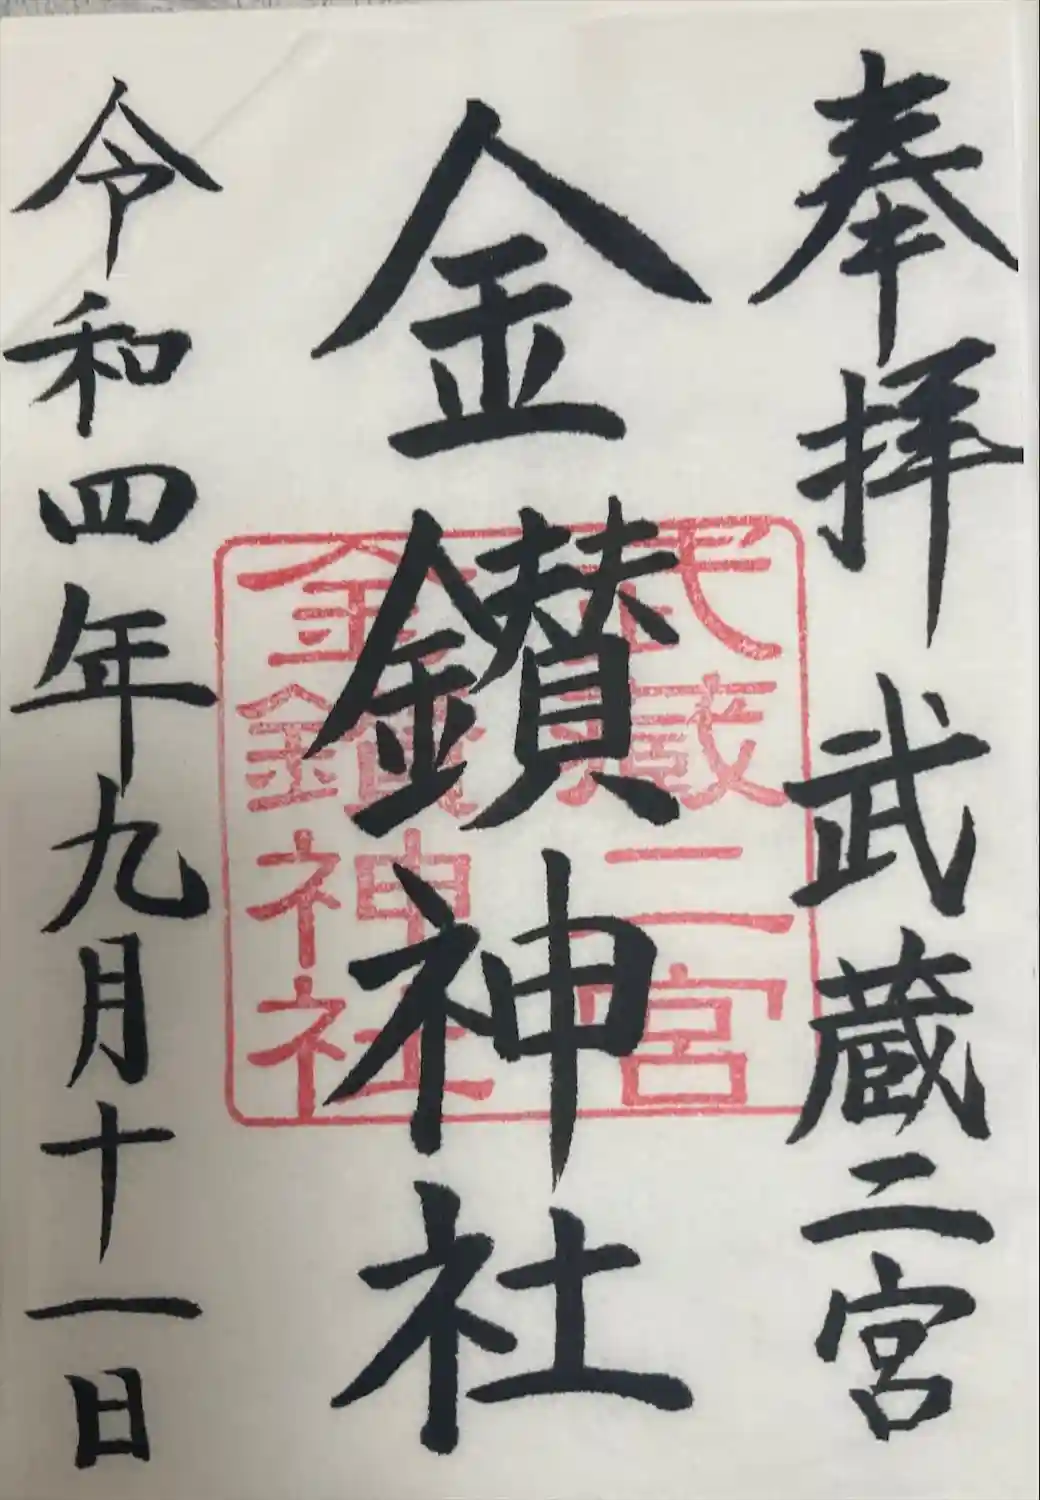 奉拝 武蔵二宮
金鑚神社
令和四年九月十一日
武蔵二宮
金鑚神社